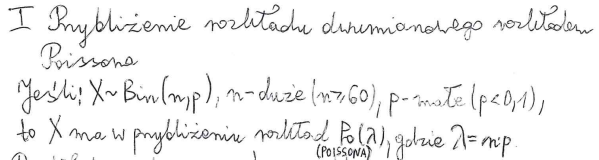 I Przybliżenie rozkładu dwumianowego rozkładem
Poissona
Jeśli: X~Bin(n,p), n-duże (n≥60), p-małe (p<0,1),
to X ma w przybliżeniu rozkład Po(λ), gdzie λ=n·p.
(POISSONA)